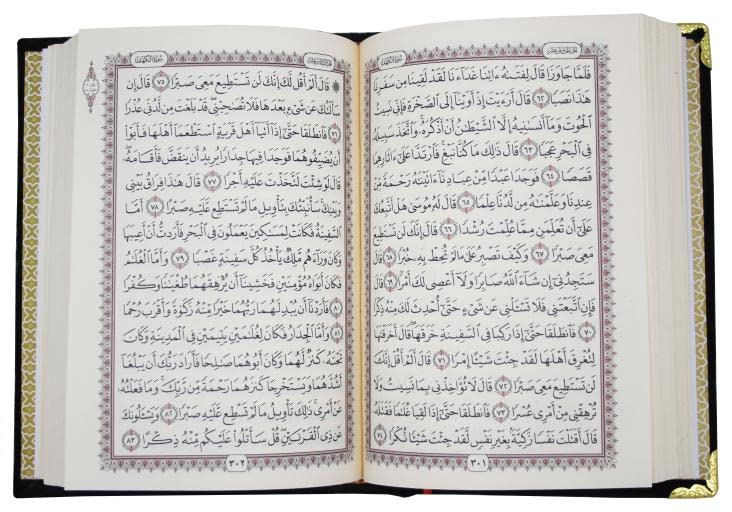 سورة الكهف
فلما جاوزا قال لفتىه ءاتنا غداءنا لقد لقينا من سفرنا
هذا نصبا ٦٢ قال أرءيت إذ أوينا إلى الصخرة فإني نسيت
الحوت وما أنسىنيه إلا الشيطن أن أذكره واتخذ سبيله
في البحر عجبا ٦٣ قال ذلك ما كنا نبغ فارتدا على ءاثارهما
قصصا ٦٤ فوجدا عبدا من عبادنا ءاتينه رحمة من
عندنا وعلمنه من لدنا علما ٦٥ قال له موسى هل أتبعك
على أن تعلمن مما علمت رشدا ٦٦ قال إنك لن تستطيع
معي صبرا ٦٧ وكيف تصبر على ما لم تحط به خبرا ٦٨ قال
ستجدني إن شاء الله صابرا ولا أعصي لك أمرا ٦٩ قال
فإن اتبعتني فلا تسئلني عن شيء حتى أحدث لك منه ذكرا
٧٠ فانطلقا حتى إذا ركبا في السفينة خرقها قال أخرقتها
لتغرق أهلها لقد جئت شيئا إمرا ٧١ قال ألم أقل إنك
لن تستطيع معي صبرا ٧٢ قال لا تؤاخذني بما نسيت ولا
ترهقني من أمري عسرا ٧٣ فانطلقا حتى إذا لقيا غلما فقتله
قال أقتلت نفسا زكية بغير نفس لقد جئت شيئا نكرا ٧٤
٣٠١
سورة الكهف
قال ألم أقل لك إنك لن تستطيع معي صبرا ٧٥ قال إن
سألتك عن شيء بعدها فلا تصحبني قد بلغت من لدني عذرا
٧٦ فانطلقا حتى إذا أتيا أهل قرية استطعما أهلها فأبوا
أن يضيفوهما فوجدا فيها جدارا يريد أن ينقض فأقامه
قال لو شئت لتخذت عليه أجرا ٧٧ قال هذا فراق بيني
وبينك سأنبئك بتأويل ما لم تستطع عليه صبرا ٧٨ أما
السفينة فكانت لمسكين يعملون في البحر فأردت أن أعيبها
وكان وراءهم ملك يأخذ كل سفينة غصبا ٧٩ وأما الغلم
فكان أبواه مؤمنين فخشينا أن يرهقهما طغينا وكفرا
٨٠ فأردنا أن يبدلهما ربهما خيرا منه زكوة وأقرب رحما
٨١ وأما الجدار فكان لغلمين يتيمين في المدينة وكان
تحته كنز لهما وكان أبوهما صلحا فأراد ربك أن يبلغا
أشدهما ويستخرجا كنزهما رحمة من ربك وما فعلته
عن أمري ذلك تأويل ما لم تسطع عليه صبرا ٨٢ ويسئلونك
عن ذي القرنين قل سأتلوا عليكم منه ذكرا ٨٣
٣٠٢